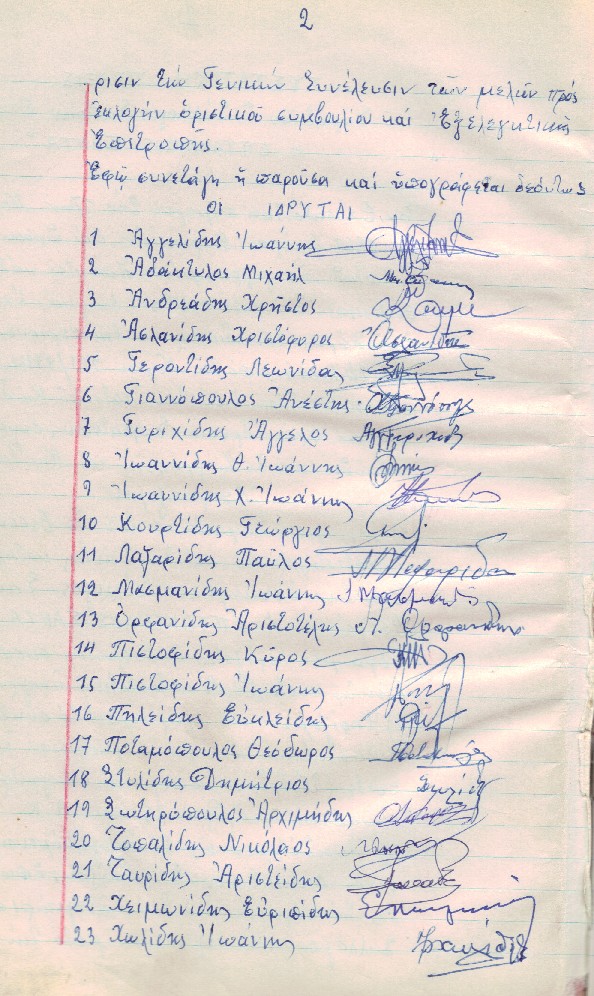 2
ρισιν τὴν Γενικὴν Συνέλευσιν τῶν μελῶν πρὸς
ἐκλογὴν ὁριστικοῦ συμβουλίου καὶ Ἐξελεγκτικῆς
Ἐπιτροπῆς.
Ἐφ' ᾧ συνετάγη ἡ παροῦσα καὶ ὑπογράφεται δεόντως
ΟΙ ΙΔΡΥΤΑΙ
1 Ἀγγελίδης Ἰωάννης
2 Ἀδάκτυλος Μιχαήλ
3 Ἀνδρεάδης Χρῆστος
4 Ἀσλανίδης Χριστόφορος Ἀσλανίδης
5 Γεροντίδης Λεωνίδας
6 Γιαννόπουλος Ἀνέστης
7 Γυριχίδης Ἄγγελος
8 Ἰωαννίδης Θ. Ἰωάννης
9 Ἰωαννίδης Χ. Ἰωάννης
10 Κουρτίδης Γεώργιος
11 Λαζαρίδης Παῦλος
12 Μασμανίδης Ἰωάννης
13 Ὀρφανίδης Ἀριστοτέλης Α. Ορφανίδης
14 Πιστοφίδης Κῦρος
15 Πιστοφίδης Ἰωάννης
16 Πηλείδης Εὐκλείδης
17 Ποταμόπουλος Θεόδωρος
18 Στυλίδης Δημήτριος
19 Σωτηρόπουλος Ἀρχιμήδης
20 Τοπαλίδης Νικόλαος
21 Ταυρίδης Ἀριστείδης
22 Χειμωνίδης Εὐριπίδης
23 Χωλίδης Ἰωάννης